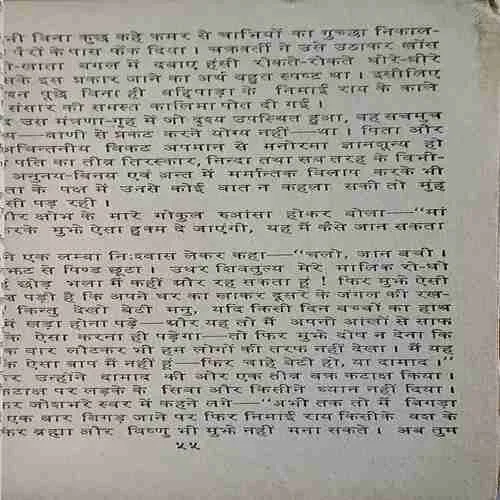 भी बिना कुछ कहे कमर से चाभियों का गुच्छा निकाल-
पैरों के पास फेंक दिया। चक्रवर्ती ने उसे उठाकर लॉस
ो-खाता बगल में दबाए हंसी रोकते-रोकते धीरे-धीरे
सके इस प्रकार जाने का अर्थ बहुत स्पष्ट था। इसीलिए
बिना ही बहिपाड़ा के निमाई राय के काले
संसार की समस्त कालिमा पोत दी गई।
द उस मंत्रणा-गृह में जो दृश्य उपस्थित हुआ, वह सचमुच
—वाणी से प्रकट करने योग्य नहीं—था। पिता और
अचिन्तनीय विकट अपमान से मनोरमा ज्ञानशून्य हो
पति का तीव्र तिरस्कार, निन्दा तथा सब तरह के विनी-
अनुनय-विनय एवं अन्त में मर्मान्तक विलाप करके भी
ता के पक्ष में उनसे कोई बात न कहला सकी तो मुंह
सी पड़ रही।
और क्षोभ के मारे गोकुल रुआंसा होकर बोला—“मां
करके मुझे ऐसा हुक्म दे जाएंगी, यह मैं कैसे जान सकता
ने एक लम्बा निःश्वास लेकर कहा—“चलो, जान बची।
झंझट से पिण्ड छूटा। उधर शिवतुल्य मेरे मालिक रो-धो
हं छोड़ भला मैं कहीं और रह सकता हूं ! फिर मुझे ऐसी
पड़ी है कि अपने घर का खाकर दूसरे के जंगल की रख-
किन्तु देखो बेटी मनु, यदि किसी दिन बच्चों का हाथ
में खड़ा होना पड़े—और यह तो मैं अपनी आंखों से साफ
के ऐसा करना ही पड़ेगा—तो फिर मुझे दोष न देना कि
क बार लौटकर भी हम लोगों की तरफ नहीं देखा। मैं यह
के ऐसा बाप मैं नहीं हूं—फिर चाहे बेटी हो, या दामाद।”
कर उन्होंने दामाद की ओर एक तीव्र वक्र कटाक्ष किया।
कटाक्ष पर लड़के के सिवा और किसीने ध्यान नहीं दिया।
कर जोशभरे स्वर में कहने लगे—“अभी तक तो मैं बिगड़ा
एक बार बिगड़ जाने पर फिर निमाई राय किसीके वश के
फिर ब्रह्मा और विष्णु भी मुझे नहीं मना सकते। अब तुम
५५